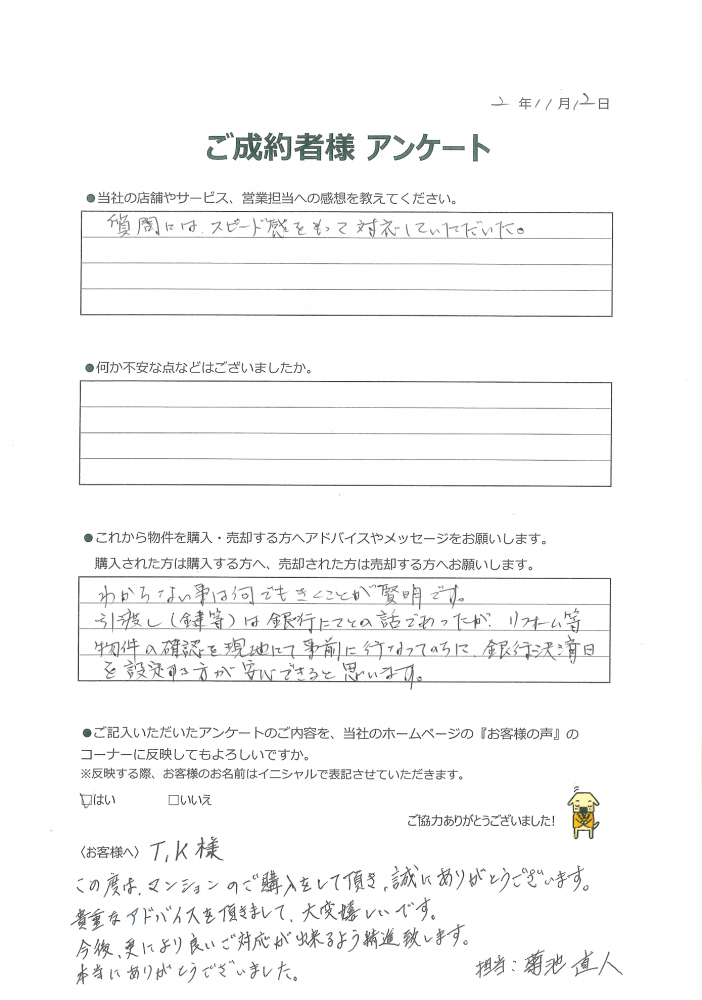 2年11月12日
ご成約者様 アンケート
●当社の店舗やサービス、営業担当への感想を教えてください。
質問には、スピード感をもって対応していただいた。
●何か不安な点などはございましたか。
●これから物件を購入・売却する方へアドバイスやメッセージをお願いします。
購入された方は購入する方へ、売却された方は売却する方へお願いします。
わからない事は何でもきくことが賢明です。
引渡し(鍵等)は銀行にてとの話であったが、リフォーム等
物件の確認を現地にて事前に行なってのちに、銀行決済日
を設定する方が安心できると思います。
●ご記入いただいたアンケートのご内容を、当社のホームページの『お客様の声』の
コーナーに反映してもよろしいですか。
※反映する際、お客様のお名前はイニシャルで表記させていただきます。
☑はい □いいえ
ご協力ありがとうございました!
〈お客様へ〉 T,K様
この度は、マンションのご購入をして頂き、誠にありがとうございます。
貴重なアドバイスを頂きまして、大変嬉しいです。
今後、更により良いご対応が出来るよう精進致します。
本当にありがとうございました。
担当:菊池 直人